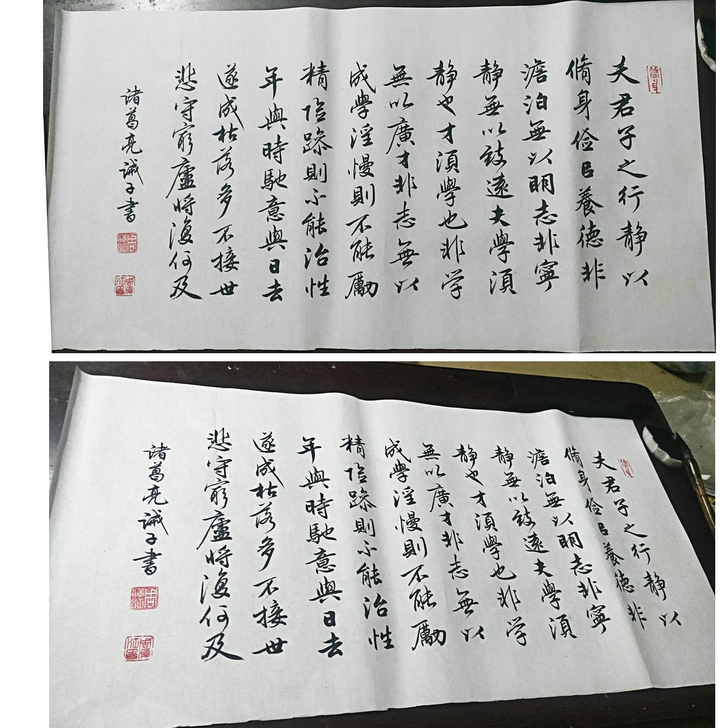 夫君子之行静以
脩身俭㠯養德非
澹泊無以明志非寧
静無以致遠夫學須
静也才須學也非学
無以廣才非志無以
成學淫慢則不能勵
精险躁則不能治性
年與時馳意與日去
遂成枯落多不接世
悲守窮廬將復何及
諸葛亮誡子書
夫君子之行静以
脩身俭㠯養德非
澹泊無以明志非寧
静無以致遠夫學須
静也才須學也非学
無以廣才非志無以
成學淫慢則不能勵
精险躁則不能治性
年與時馳意與日去
遂成枯落多不接世
悲守窮廬將復何及
諸葛亮誡子書